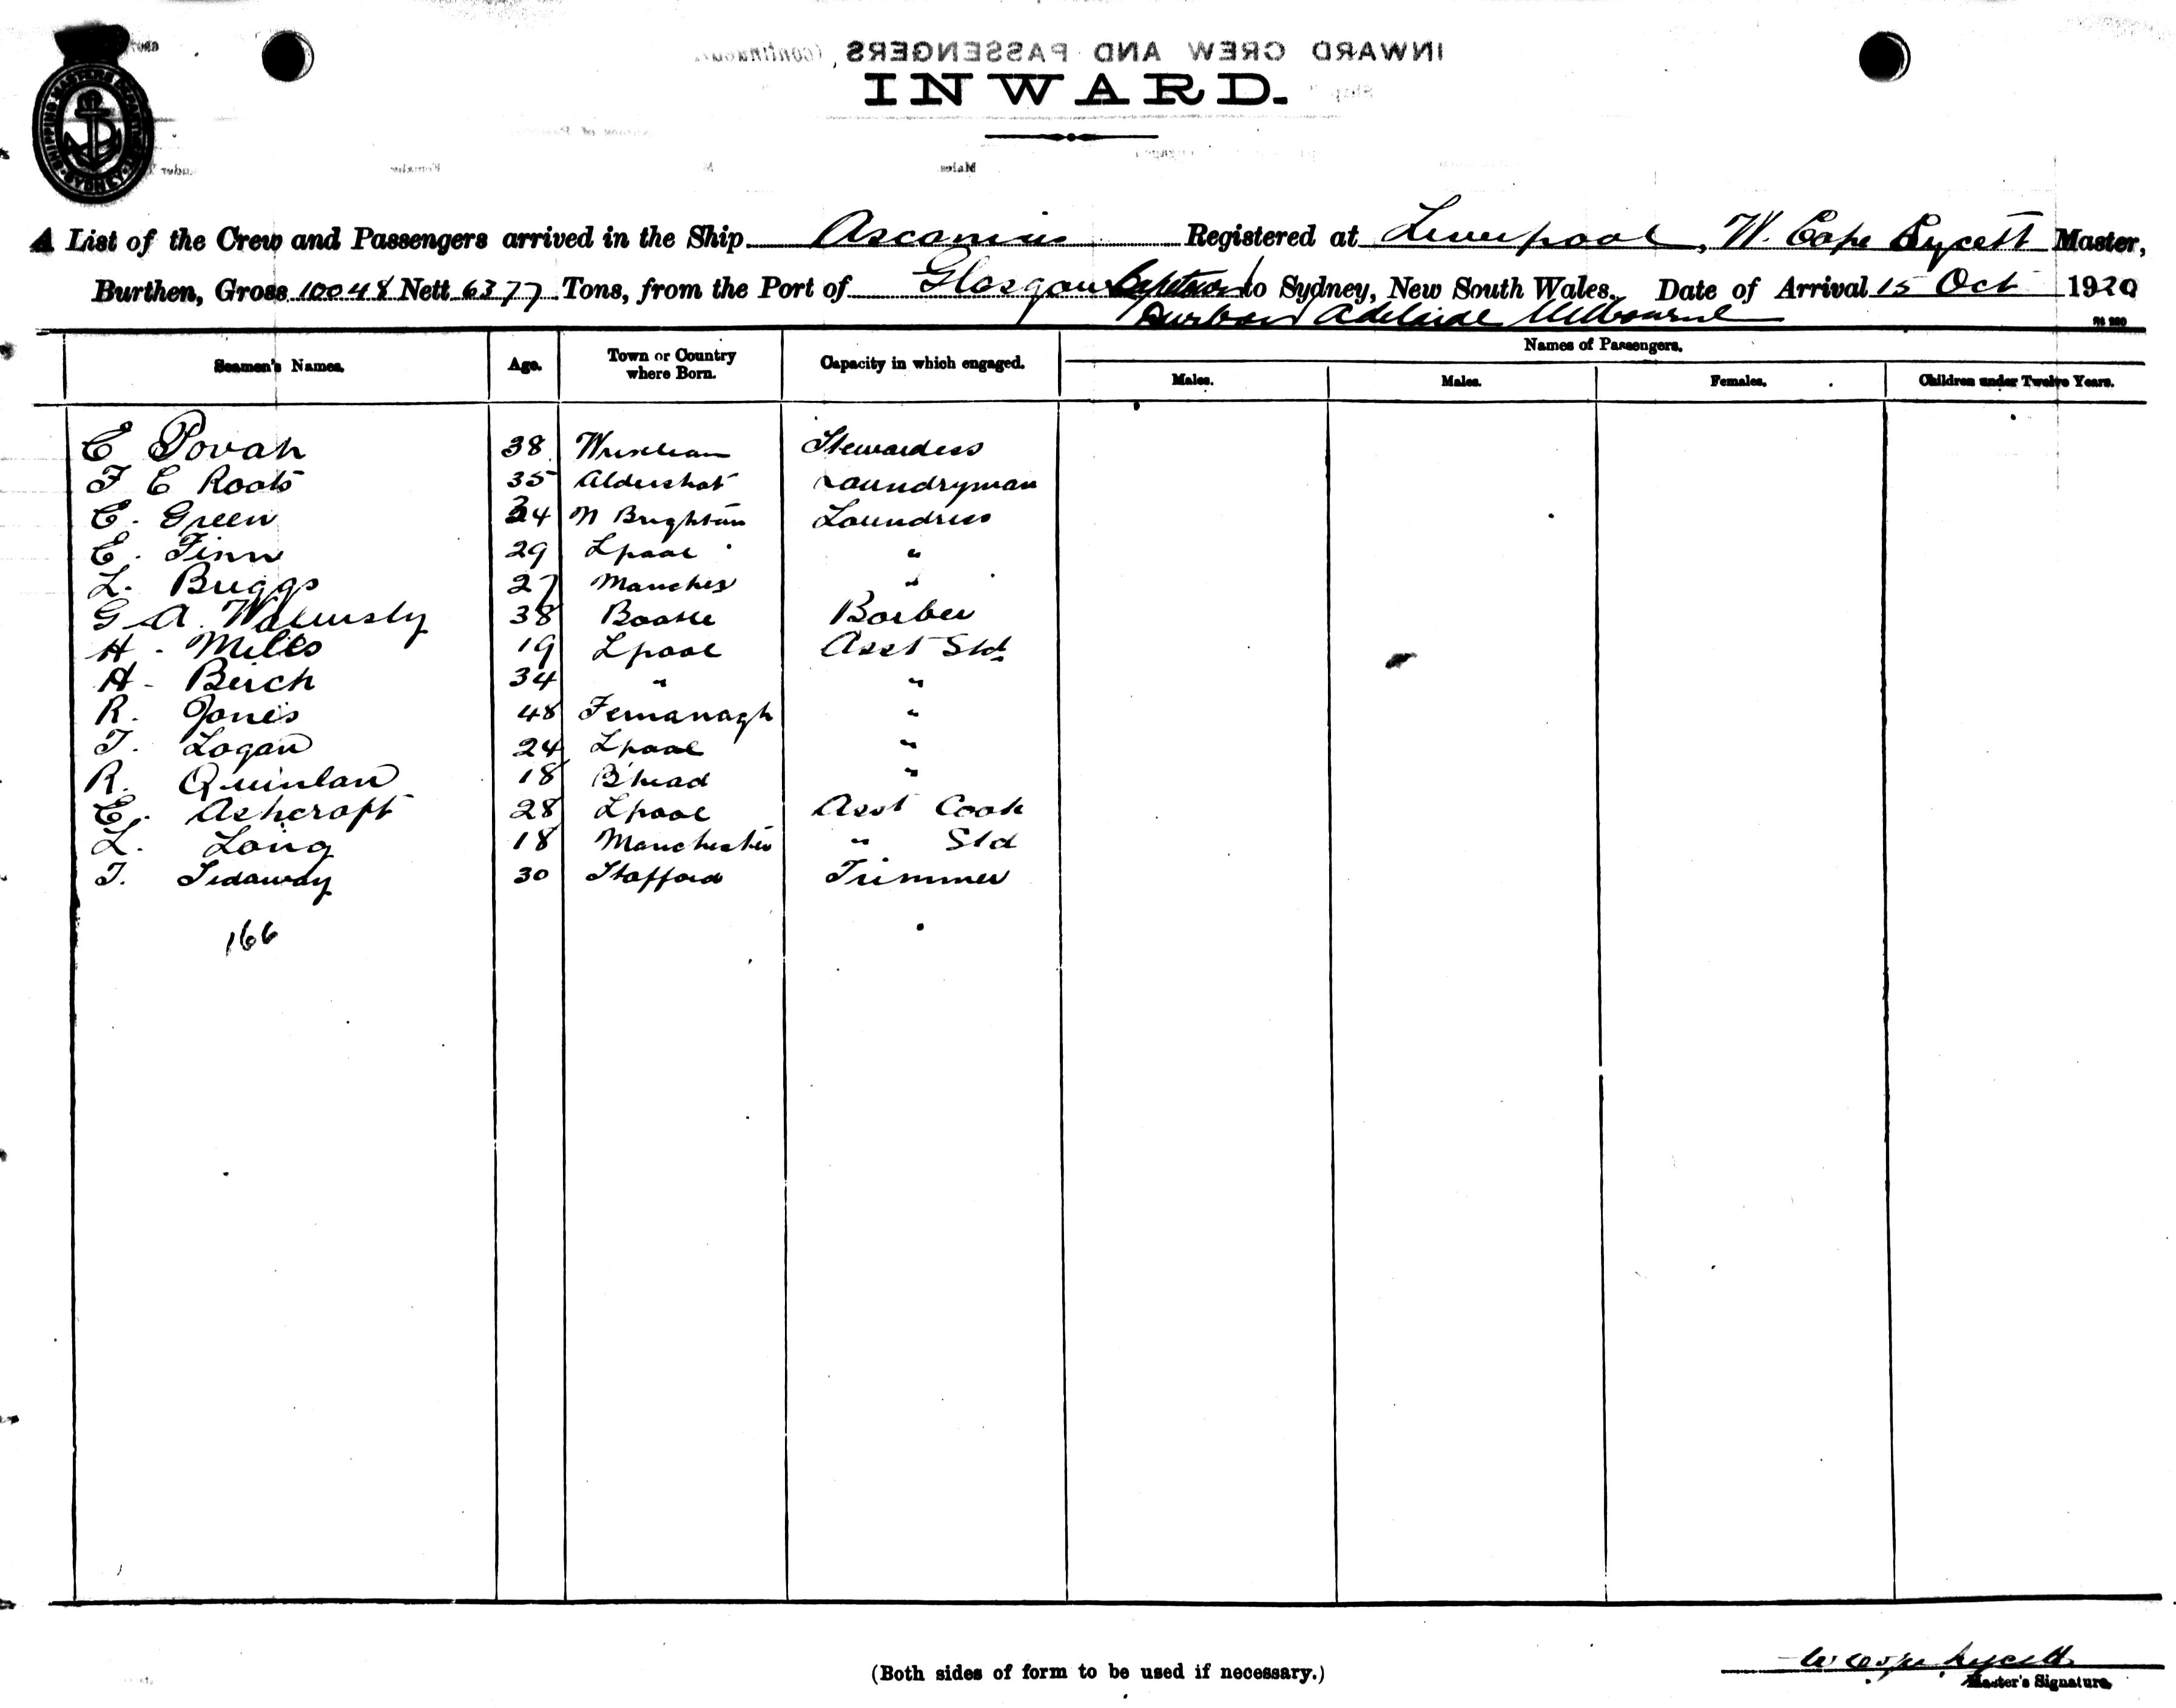 SHIPPING MASTER'S DEPARTMENT SYDNEY
INWARD CREW AND PASSENGERS, (continued
INWARD.
A List of the Crew and Passengers arrived in the Ship Ascanius Registered at Liverpool, W. Cope Lycett Master,
Burthen, Gross 10048 Nett 6377 Tons, from the Port of Glasgow Capetown to Sydney, New South Wales. Date of Arrival 15 Oct 1920
Durban Adelaide Melbourne
Names of Passengers.
Seamen's Names. Age. Town or Country where Born. Capacity in which engaged. Males. Males. Females. Children under Twelve Years.
E Povah 38 Wrexham Stewardess
F E Roots 35 Aldershot Laundryman
E. Green 34 N Brighton Laundress
E. Finn 29 Lpool "
L. Briggs 27 Manches "
G A. Walmsly 38 Bootle Barber
H. Miles 19 Lpool Asst Std
H. Birch 34 " "
R. Jones 48 Fermanagh "
T. Logan 24 Lpool "
R. Quinlan 18 B'head "
E. Ashcroft 28 Lpool Asst Cook
L. Long 18 Manchester " Std
T. Sedaway 30 Stafford Trimmer
166
(Both sides of form to be used if necessary.)
W Cope Lycett
Master's Signature.